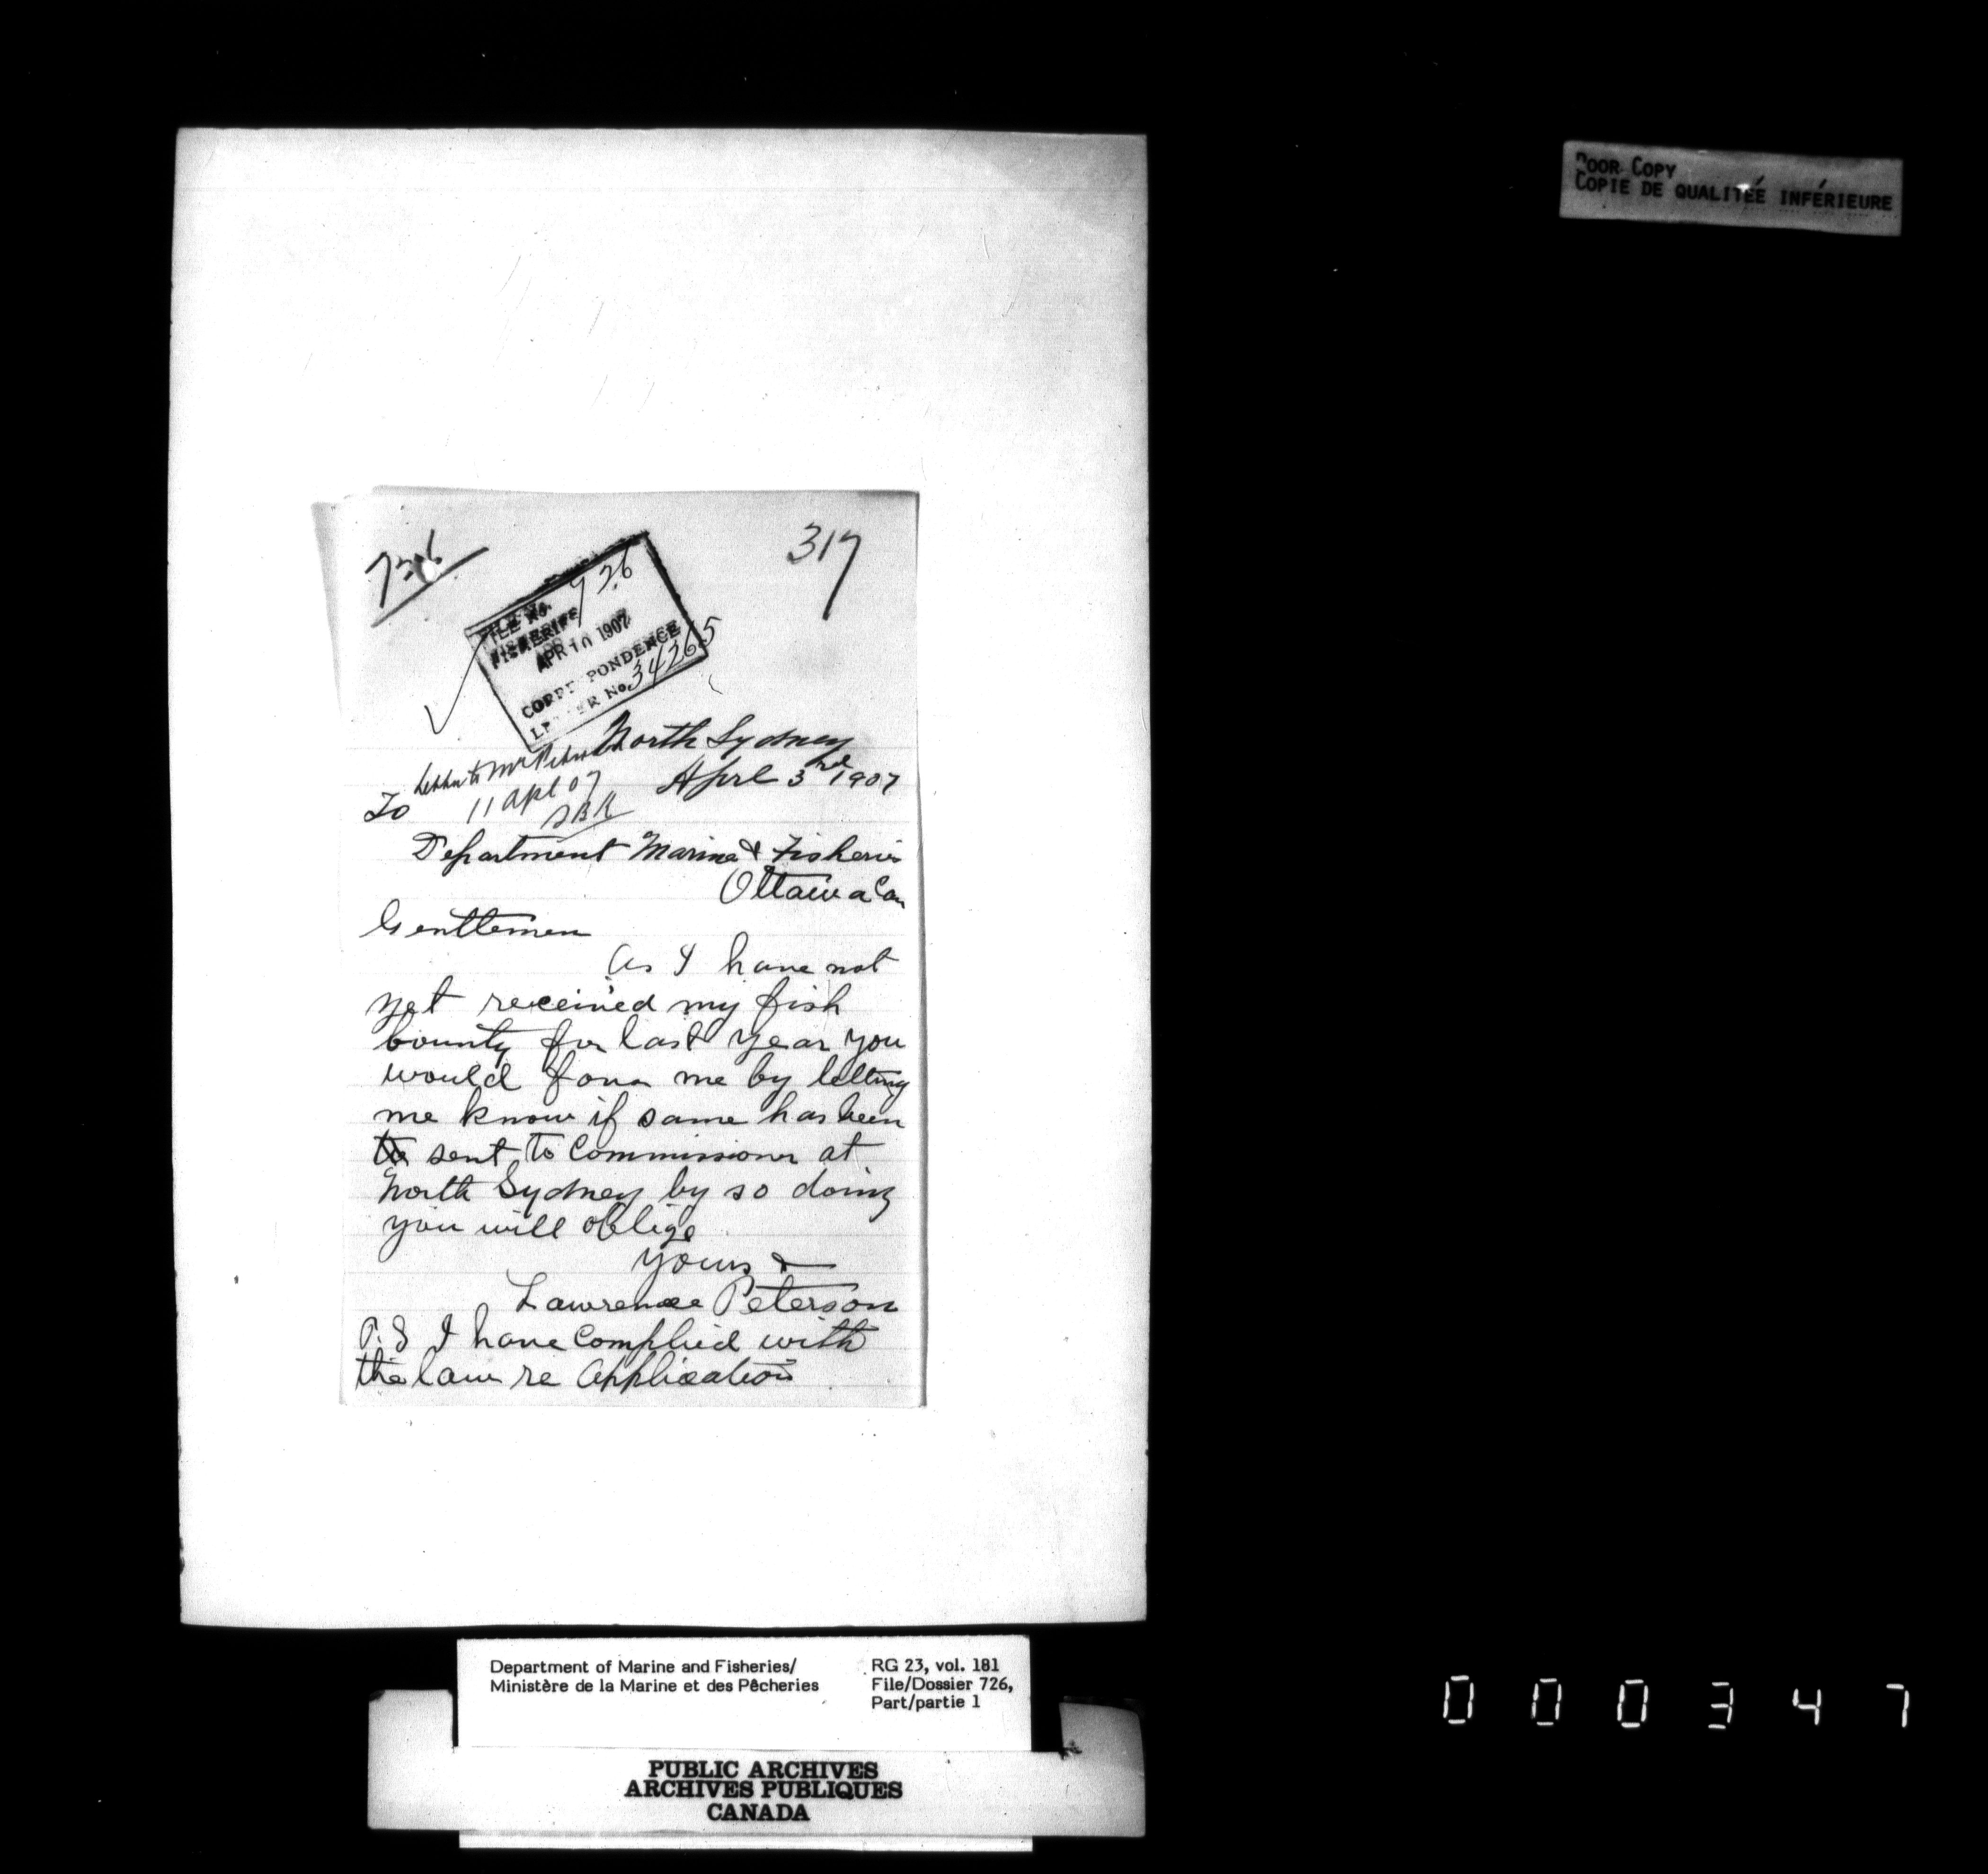 POOR COPY
COPIE DE QUALITEÉ INFÉRIEURE
726
317
FILE No. 726
FISHERIES
APR 10 1907
CORRESPONDENCE
LETTER No. 34265
North Sydney
Aprl 3rd 1907
Letter to Mr Peterson
11 Apl 07
To
Department Marine & Fisheries
Ottawa Can
Genttemen
As I have not
yet received my fish
bounty for last year you
would favor me by letting
me know if same has been
to sent to Commissioner at
North Sydney by so doing
you will oblige
yours &
Lawrence Peterson
P.S I have Complied with
the law re Application
Department of Marine and Fisheries/
Ministère de la Marine et des Pêcheries
RG 23, vol. 181
File/Dossier 726,
Part/partie 1
PUBLIC ARCHIVES
ARCHIVES PUBLIQUES
CANADA
000347